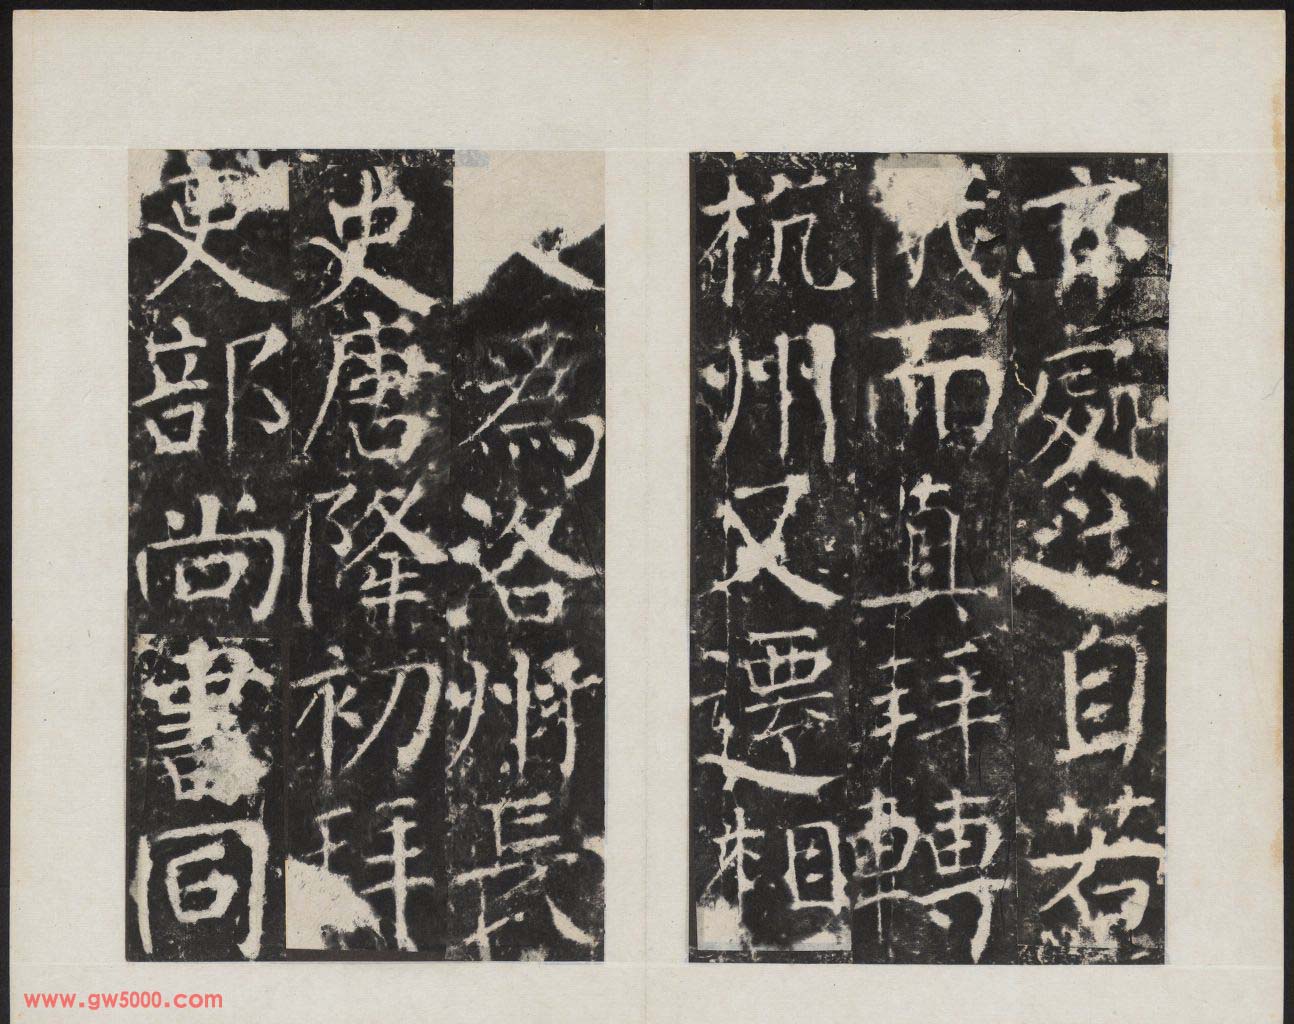 亦處之自若
而直拜轉
杭州又遷相
爲洛州長
史唐隆初拜
吏部尚書同
www.gw5000.com